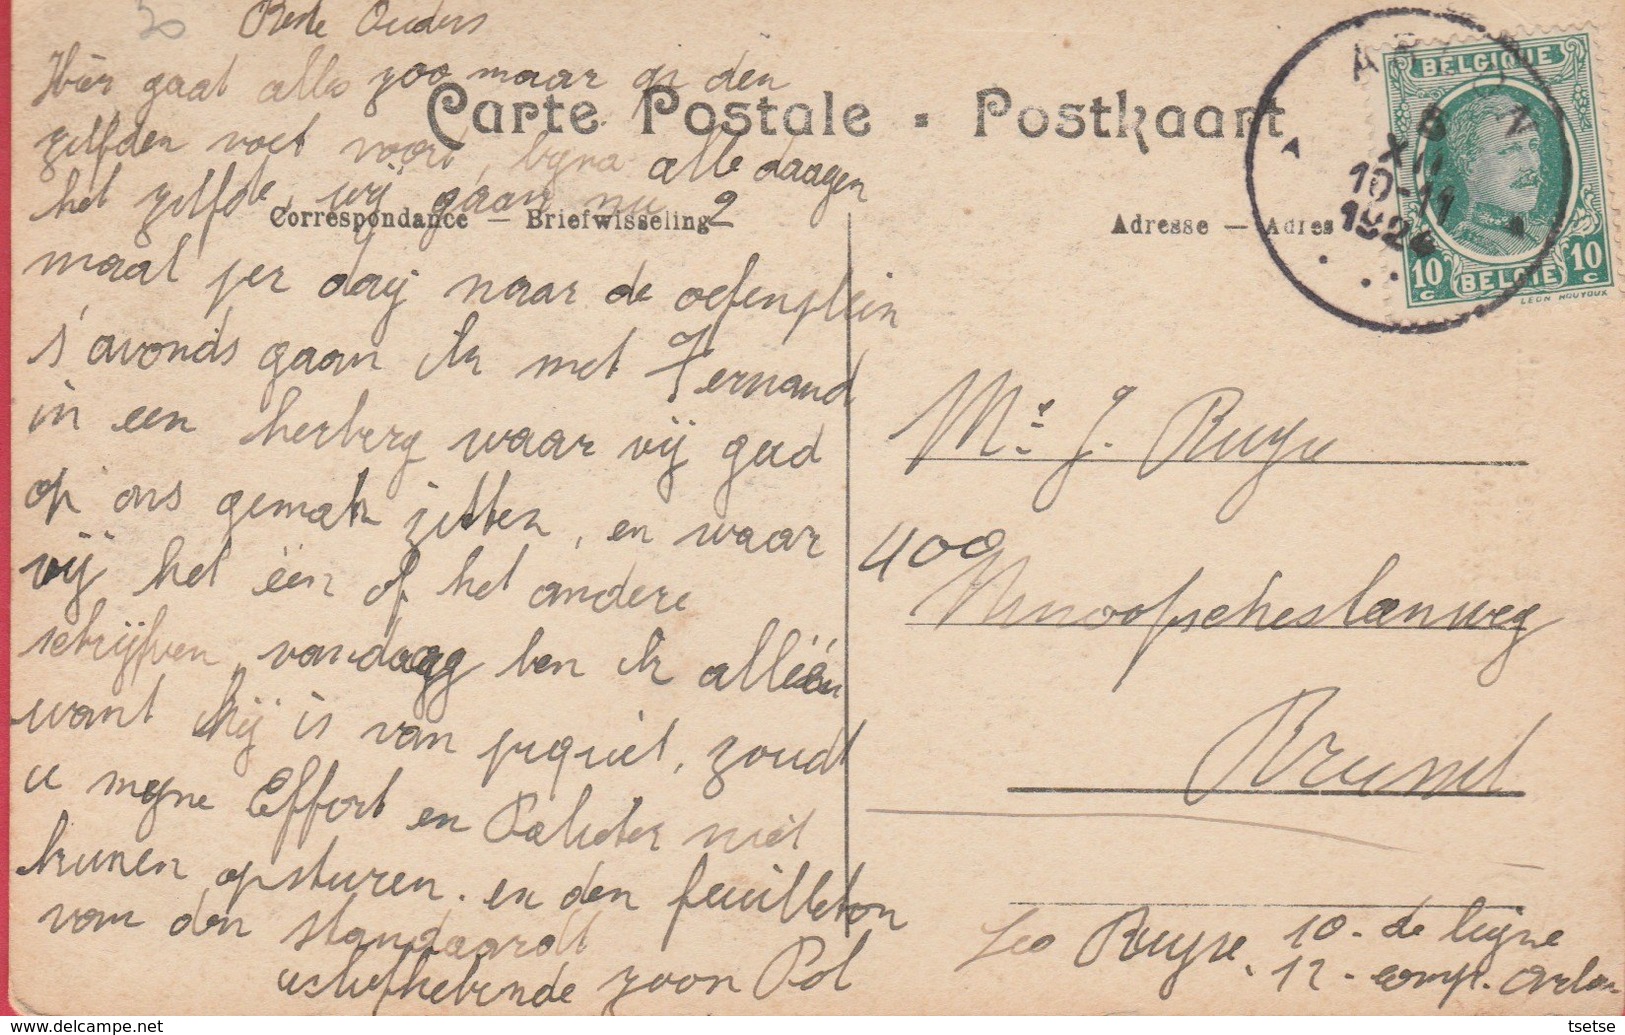 30 Beste Ouders
Hier gaat alles zoo maar op den
zelfden voet voort, byna alle daagen
het zelfde, wij gaan nu 2
maal per dag naar de oefenplein
s'avonds gaan ik met Fernand
in een herberg waar vij goed
op ons gemak zitten, en waar
vij het één of het andere
schrijfven, vandaag ben ik alléén
want hij is van piquiet, zoudt
u myne Effort en niet
kunnen opsturen. en den feuilleton
van den standaardt
liefhebende zoon Pol
Carte Postale - Postkaart
Correspondance — Briefwisseling
Adresse — Adres
BELGIQUE
10 c BELGIE 10 c
LEON HOUYOUX
ARLON
8 XII
10-11
192
Mr J. Ruyse
400
Brussel
Leo Ruyse 10-de ligne
12-comp. Arlon
tsetse